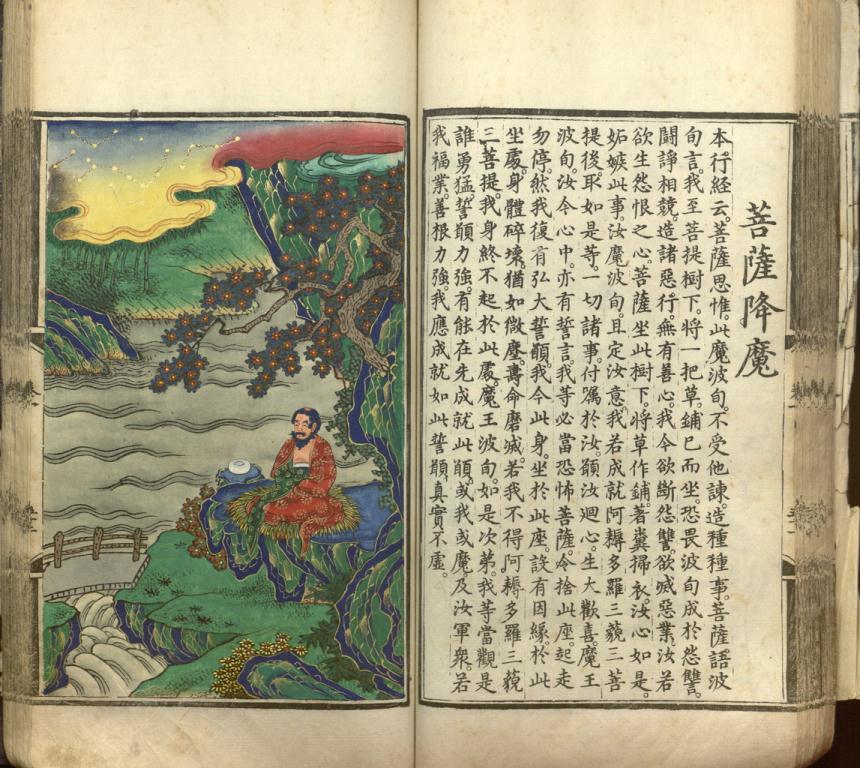 菩薩降魔
本行経云。菩薩思惟。此魔波旬。不受他諫。造種種事。菩薩語波
旬言。我至菩提樹下。將一把草。鋪已而坐。恐畏波旬成於怨讐。
鬪諍相競。造諸惡行。無有善心。我今欲斷怨讐。欲滅惡業。汝若
欲生怨恨之心。菩薩坐此樹下。將草作鋪。著糞掃衣。汝心如是。
妬嫉此事。汝魔波旬。且定汝意。我若成就阿耨多羅三藐三菩
提後。取如是等。一切諸事付囑於汝。願汝廻心。生大歡喜。魔王
波旬。汝今心中。亦有誓言。我等必當恐怖菩薩。令捨此座。起走
勿停。然我復有弘大誓願。我今此身。坐於此座。設有因緣。於此
坐處。身體碎壞。猶如微塵。壽命磨滅。若我不得阿耨多羅三藐
三菩提。我身終不起於此處。魔王波旬。如是次第。我等當觀是
誰勇猛。誓願力強。有能在先成就此願。或我或魔。及汝軍衆。若
我福業。善根力強。我應成就如此誓願。真實不虛。